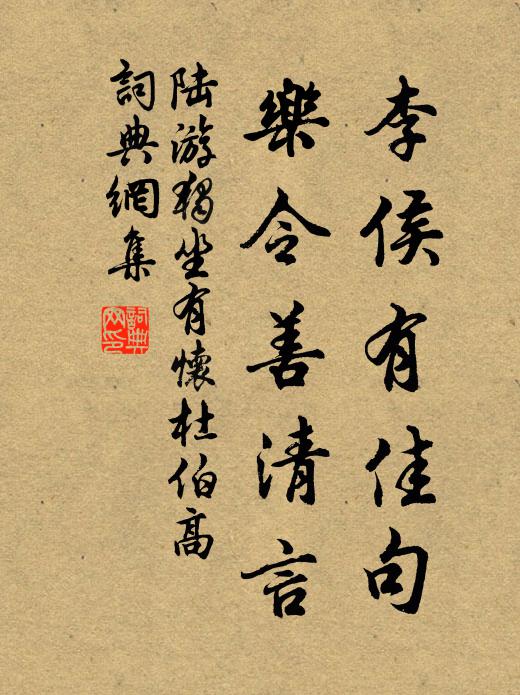 李侯有佳句
樂令善清言
陸游獨坐有懷杜伯高
詞典網集
詞典
网印